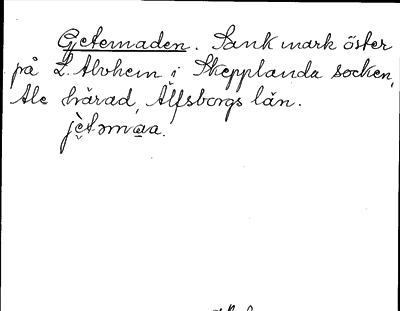 Getemaden. Sank mark öster
på L. Alvhem i Skepplanda socken,
Ale härad, Älfsborgs län.
jètəmaa.